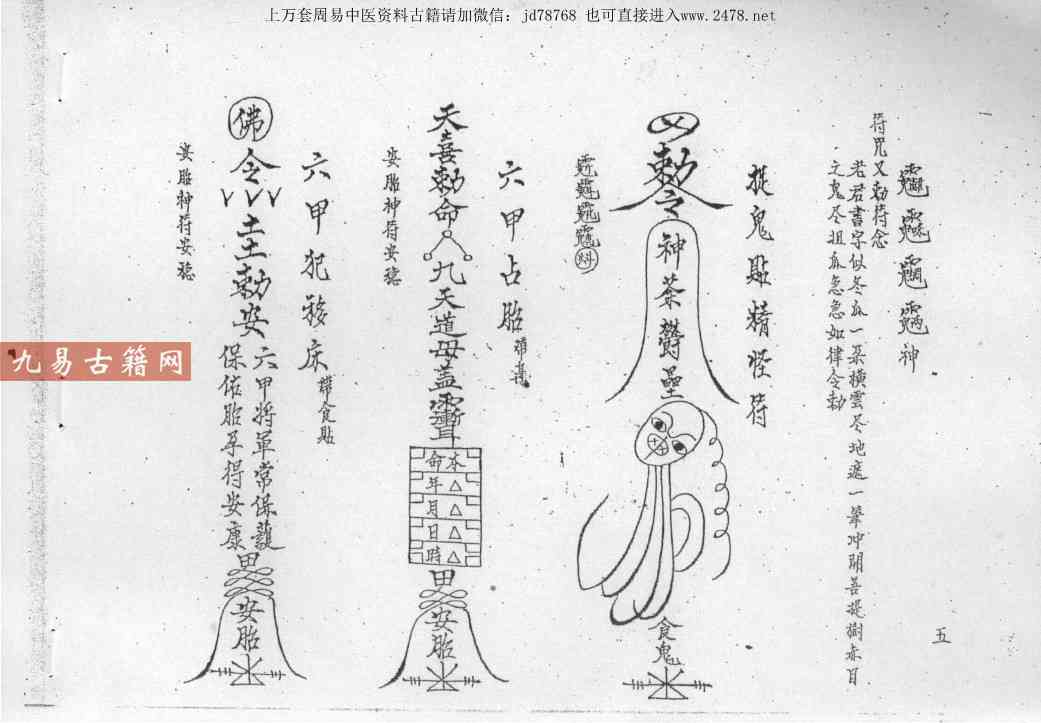 上万套周易中医资料古籍请加微信：jd78768 也可直接进入www.2478.net
神
符咒又勅符念
老君書字似冬瓜一朵橫雲尽地遮一筆冲開菩提樹赤目
之鬼尽担瓜急急如律令勅
捉鬼貼精怪符
勅令
神荼欝壘
食鬼
六甲占胎
帶身
天喜勅命
九天道母盖
本命
年△
月△
日△
時△
安胎
安胎神符安穩
六甲犯移床
帶食貼
佛
令
勅安
六甲将軍常保護
保佑胎孕得安康
安胎
安胎神符安穩
五
九易古籍网